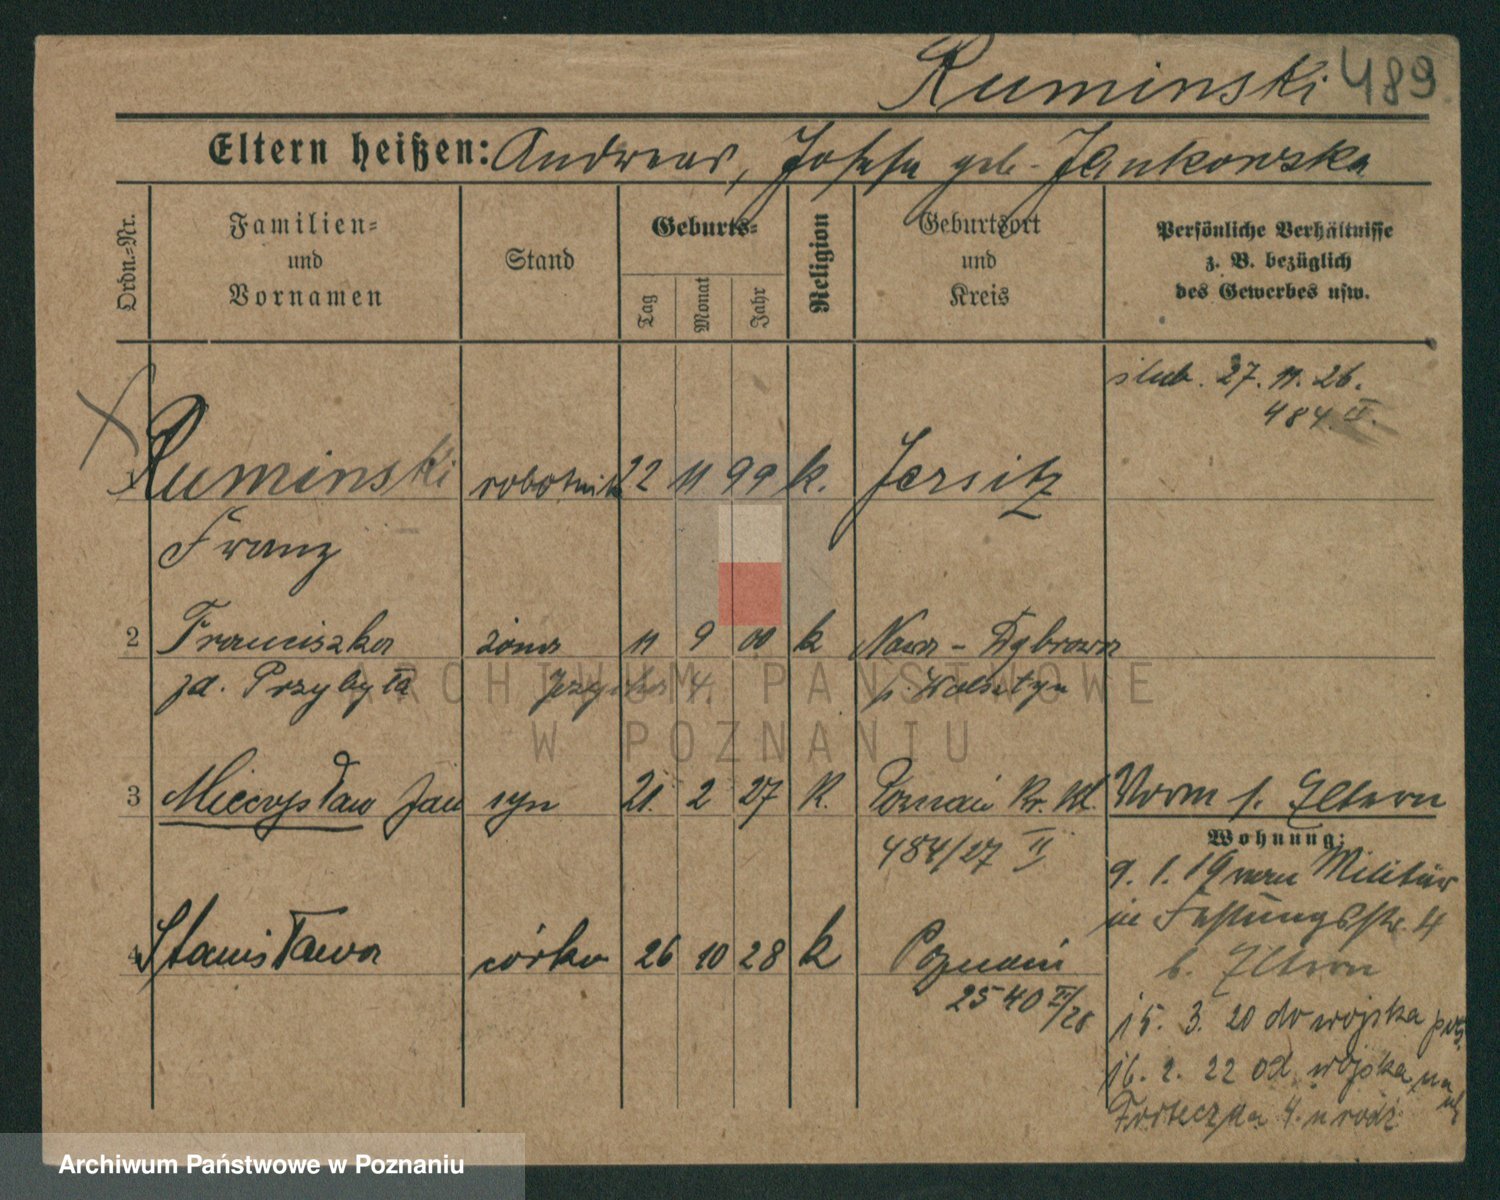 Ruminski 489
Eltern heißen: Andreas, Josefa geb. Jankowska
Ordn.-Nr.
Familien-
und
Vornamen
Stand
Geburts-
Tag
Monat
Jahr
Religion
Geburtsort
und
Kreis
Persönliche Verhältnisse
z. B. bezüglich
des Gewerbes usw.
ślub. 27. 11. 26.
484 II.
1 Ruminski robotnik 22 11 99 k. Jersitz
Franz
2 Franciszka żona 11 9 00 k Nowa-Dąbrowa
zd. Przybyła p. Wolsztyn
3 Mieczysław Jan syn 21. 2 27 k. Poznań Kr. Vorm s. Eltern
484/27 II
Wohnung:
9. 1. 19 vom Militär
in Festungsstr. 4
b. Eltern
4 Stanisława córka 26 10 28 k Poznań
2540 II/28
15. 3. 20 do wojska
16. 2. 22 od wojska na
Forteczna 4. u rodz
ARCHIWUM PAŃSTWOWE
W POZNANIU
Archiwum Państwowe w Poznaniu